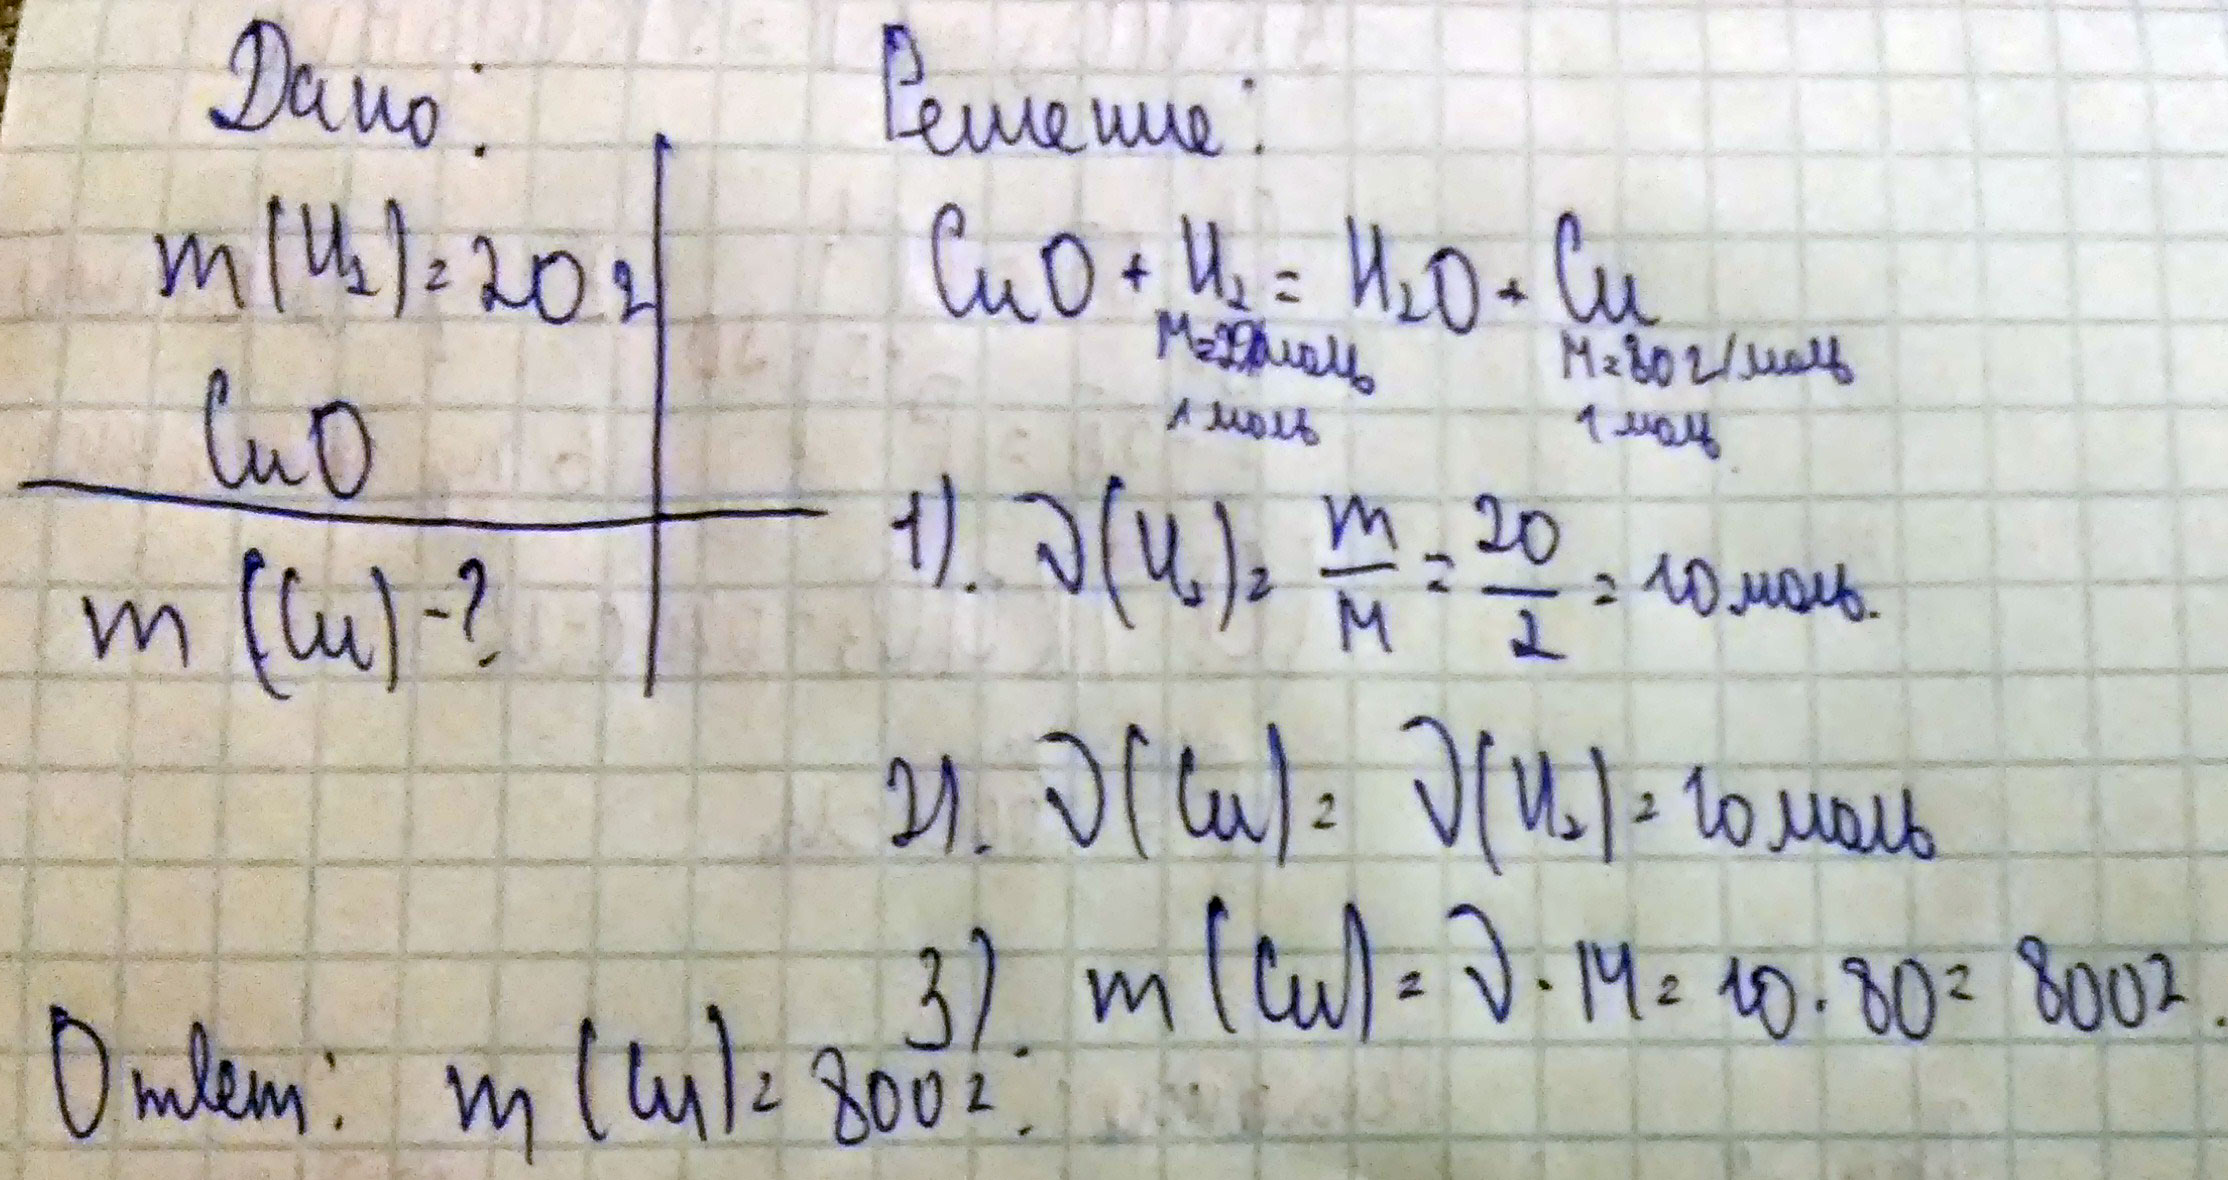 Дано:
m(H₂)=20г
CuO
m(Cu)-?
Решение:
CuO + H₂ = H₂O + Cu
M=80г/моль
1 моль 1 моль
1). ν(H₂)= m/M = 20/2 = 10 моль.
2). ν(Cu)= ν(H₂)=10 моль
3). m(Cu)= ν·M= 10·80= 800г.
Ответ: m(Cu)= 800г.